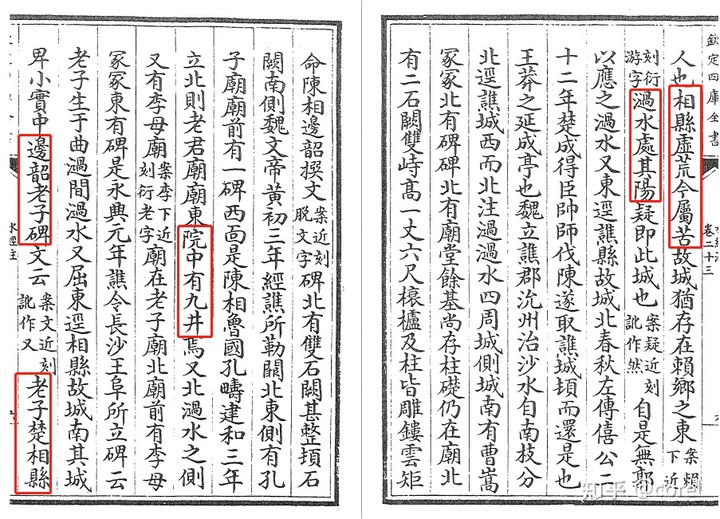 命陳相邊韶撰文案近刻脫文字碑北有雙石闕甚整頓石
闕南側魏文帝黃初三年經譙所勒闕北東側有孔
子廟廟前有一碑西面是陳相魯國孔疇建和三年
立北則老君廟廟東院中有九井焉又北濄水之側
又有李母廟案李下近刻衍老字廟在老子廟北廟前有李母
冢冢東有碑是永興元年譙令長沙王阜所立碑云
老子生于曲濄間濄水又屈東逕相縣故城南其城
卑小實中邊韶老子碑文云案文近刻訛作又老子楚相縣
水經注
欽定四庫全書
卷二十三
人也相縣虛荒今屬苦故城猶存在賴鄉之東案賴下近
刻衍游字濄水處其陽疑即此城也案疑近刻訛作然自是無郭
以應之濄水又東逕譙縣故城北春秋左傳僖公二
十二年楚成得臣帥師伐陳遂取譙城頓而還是也
王莽之延成亭也魏立譙郡沇州治沙水自南枝分
北逕譙城西而北注濄濄水四周城側城南有曹嵩
冢冢北有碑碑北有廟堂餘基尚存柱礎仍在廟北
有二石闕雙峙高一丈六尺榱櫨及柱皆雕鏤雲矩
知乎 @corel